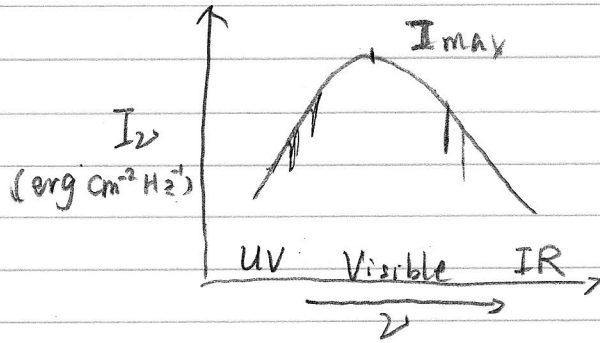 Imax
Iν
(erg cm⁻² Hz⁻¹)
UV Visible IR
ν